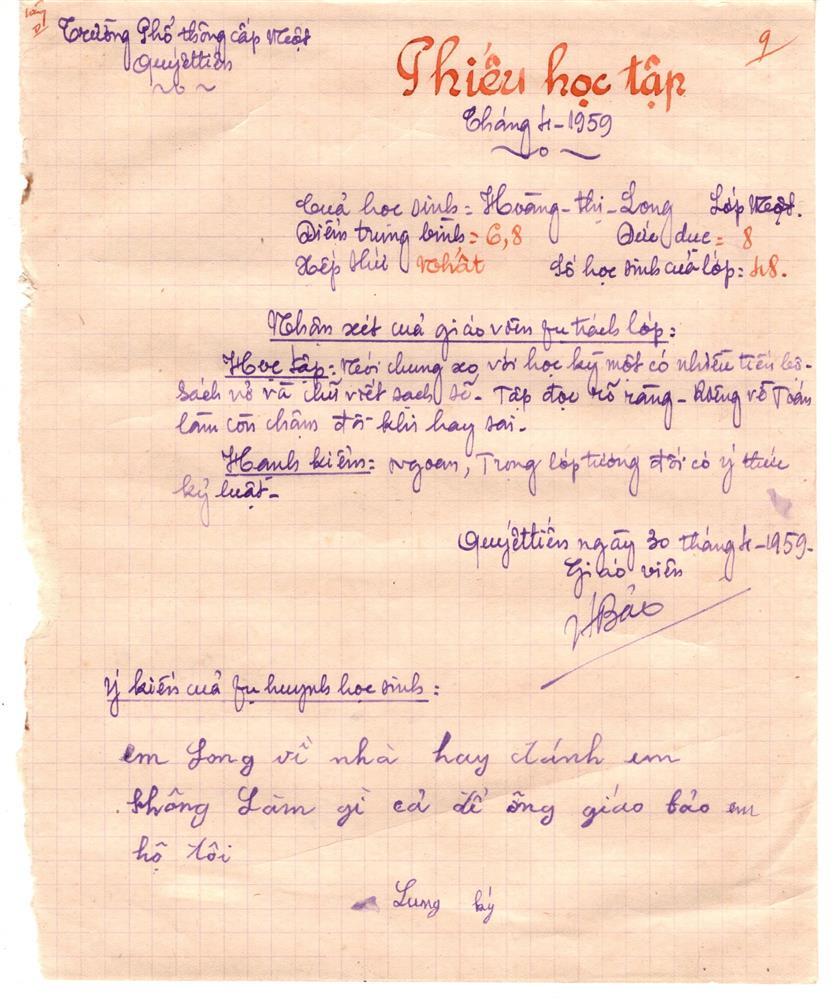 Trường Phổ thông cấp Một
Quyết tiến
9
Phiếu học tập
Tháng 4-1959
Cuả học sinh = Hoàng-thị-Long Lớp Một.
Điểm trung bình = 6,8 Đức dục = 8
Xếp thứ nhất Số học sinh cuả lớp = 48.
Nhận xét cuả giáo viên fụ trách lớp:
Học tập: Nói chung so với học kỳ một có nhiều tiến bộ-
Sách vở và chữ viết sạch sẽ- Tập đọc rõ ràng- Riêng về Toán
làm còn chậm đôi khi hay sai-
Hạnh kiểm: Ngoan, Trong lớp tương đối có ý thức
kỷ luật-
Quyết tiến ngày 30 tháng 4-1959-
Giáo viên
Bảo
Ý kiến cuả fụ huynh học sinh:
em Long về nhà hay đánh em
không Làm gì cả để ông giáo bảo em
hộ tôi
Lung ký